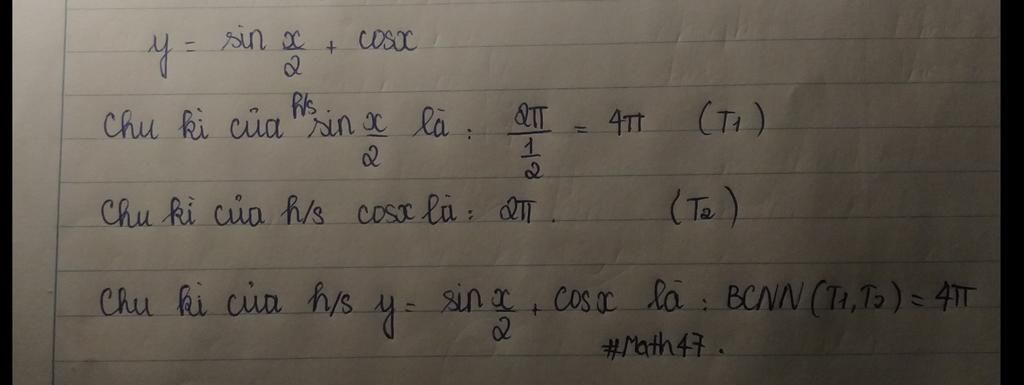 y = sin x/2 + cosx
Chu kì của h/s sin x/2 là : 2π/(1/2) = 4π (T1)
Chu kì của h/s cosx là : 2π. (T2)
Chu kì của h/s y = sin x/2 + cosx là : BCNN(T1,T2) = 4π
#Math47.